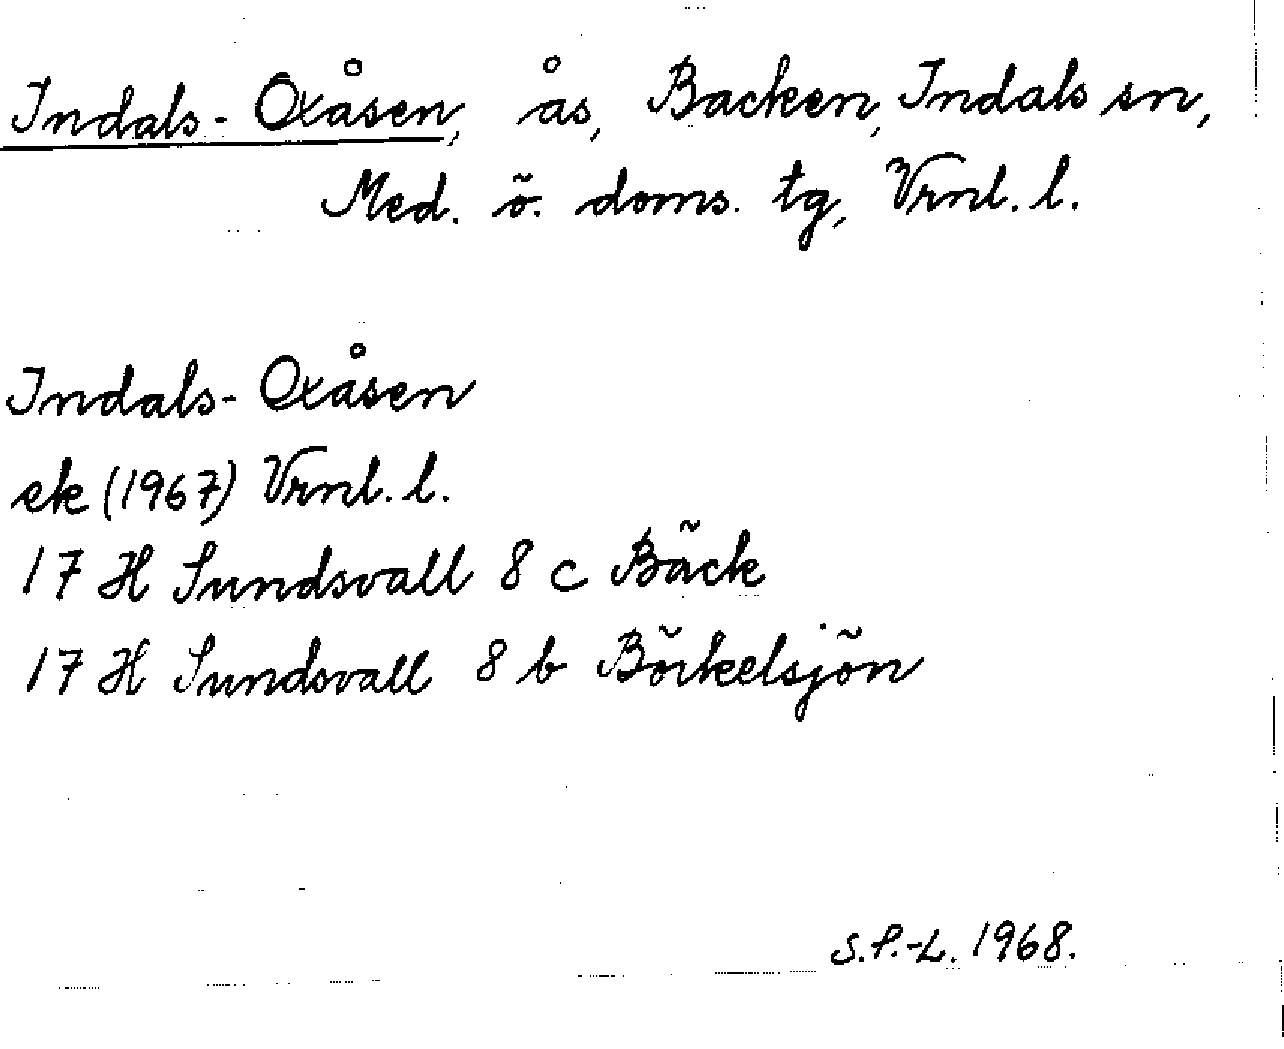 Indals-Oxåsen, ås, Backen, Indals sn,
Med. ö. doms. tg, Vrnl. l.
Indals-Oxåsen
ek (1967) Vrnl. l.
17 H Sundsvall 8 c Bäck
17 H Sundsvall 8 b Börkelsjön
S.P.-L. 1968.